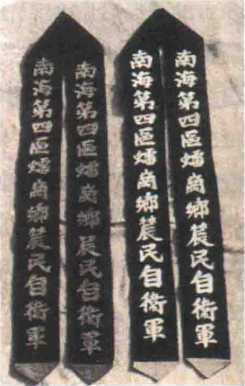 南海第四區崗鄉農民自衛軍
南海第四區崗鄉農民自衛軍
南海第四區崗鄉農民自衛軍
南海第四區崗鄉農民自衛軍